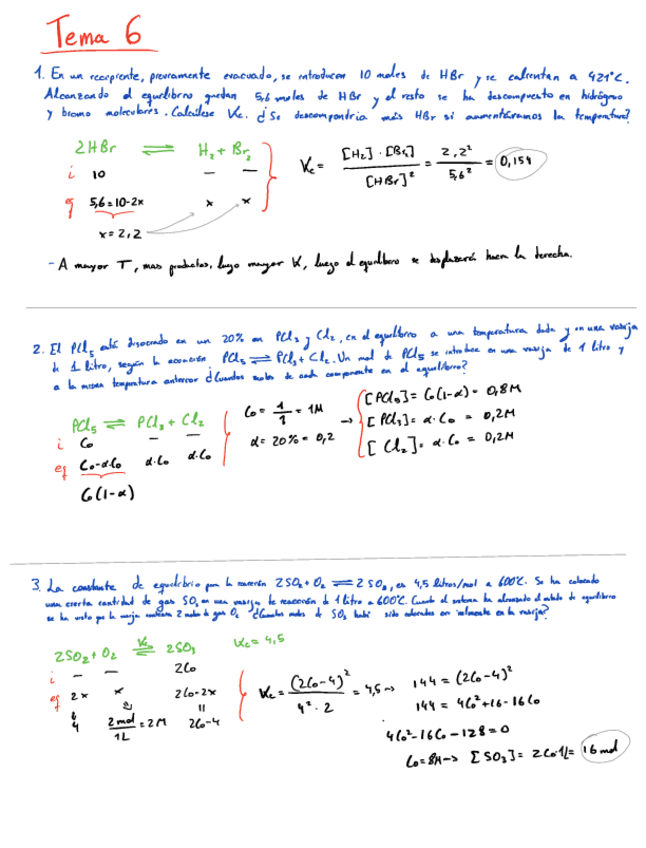 Tema 6
1. En un recipiente, previamente evacuado, se introducen 10 moles de HBr y se calientan a 421°C.
Alcanzando el equilibrio quedan 5,6 moles de HBr y el resto se ha descompuesto en hidrógeno
y bromo moleculares. Calcúlese Kc. ¿Se descompondría más HBr si aumentáramos la temperatura?
2HBr ⇌ H₂ + Br₂
i 10 — —
q 5,6=10-2x x x
x=2,2
Kc = [H₂]·[Br₂] / [HBr]² = 2,2² / 5,6² = 0,154
- A mayor T, mas productos, luego mayor K, luego el equilibrio se desplazará hacia la derecha.
2. El PCl₅ está disociado en un 20% en PCl₃ y Cl₂, en el equilibrio a una temperatura dada y en una vasija
de 1 litro, según la ecuación PCl₅ ⇌ PCl₃ + Cl₂. Un mol de PCl₅ se introduce en una vasija de 1 litro y
a la misma temperatura anterior ¿Cuantos moles de cada componente en el equilibrio?
PCl₅ ⇌ PCl₃ + Cl₂
i Co — —
eq Co-αCo α·Co α·Co
Co(1-α)
Co = 1/1 = 1M
α = 20% = 0,2
→ [PCl₅] = Co(1-α) = 0,8M
[PCl₃] = α·Co = 0,2M
[Cl₂] = α·Co = 0,2M
3. La constante de equilibrio para la reacción 2SO₂ + O₂ ⇌ 2SO₃, es 4,5 litros/mol a 600°C. Se ha colocado
una cierta cantidad de gas SO₃ en una vasija de reacción de 1 litro a 600°C. Cuando el sistema ha alcanzado el estado de equilibrio
se ha visto que la vasija contiene 2 moles de gas O₂ ¿Cuantos moles de SO₃ habrá sido colocados en inicialmente en la vasija?
2SO₂ + O₂ ⇌ 2SO₃ Kc = 4,5
i — — 2Co
eq 2x x 2Co-2x
4 2mol/1L = 2M 2Co-4
Kc = (2Co-4)² / 4²·2 = 4,5 → 144 = (2Co-4)²
144 = 4Co² + 16 - 16Co
4Co² - 16Co - 128 = 0
Co = 8M → [SO₃] = 2Co·1L = 16 mol